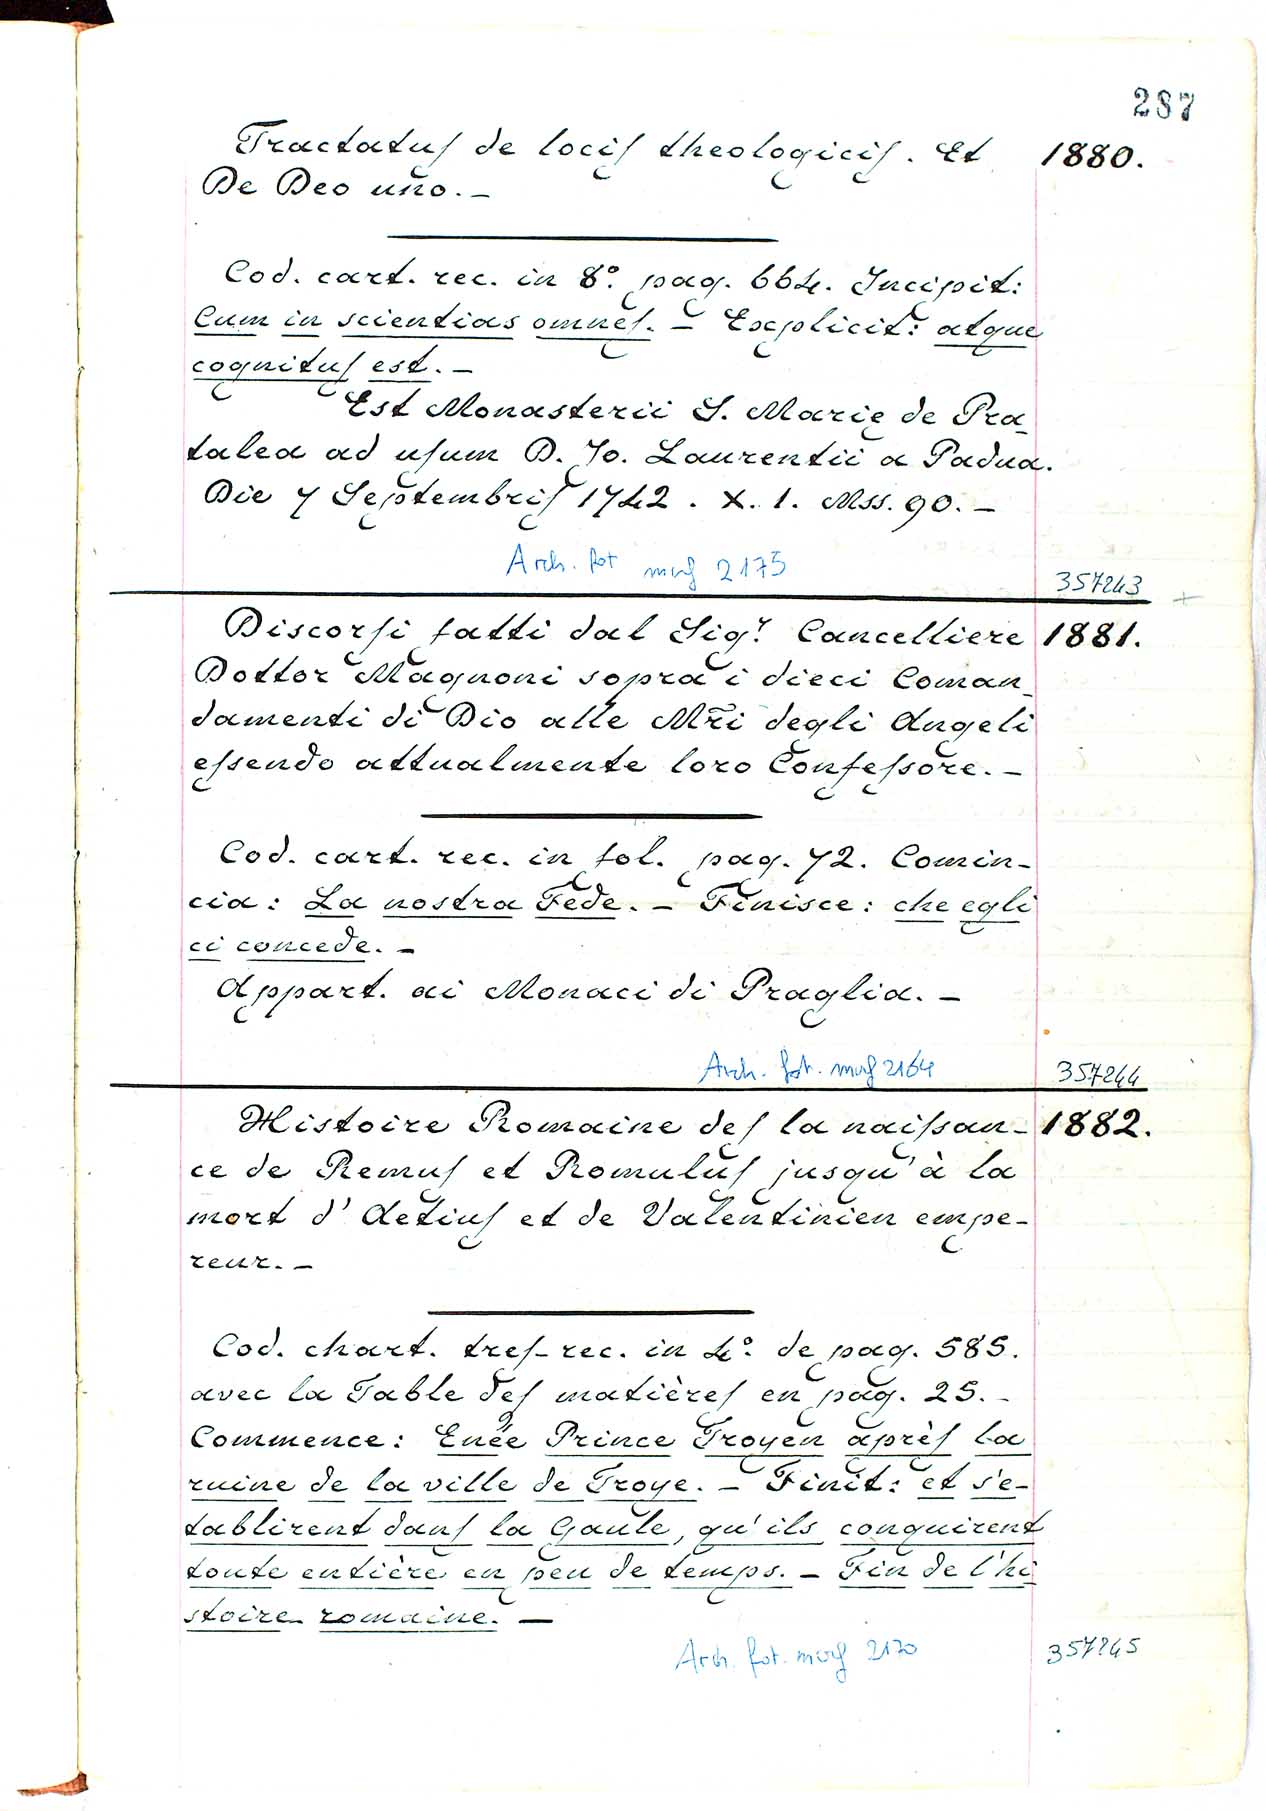 287
Tractatus de locis theologicis. Et 1880.
De Deo uno. –
Cod. cart. rec. in 8º. pag. 664. Incipit:
Cum in scientias omnes. – Explicit: atque
cognitus est. –
Est Monasterii S. Marie de Pra-
talea ad usum D. Jo. Laurentii a Padua.
Die 7 Septembris 1742. X. 1. Mss. 90. –
Arch. fot mof 2175
357243 +
Discorsi fatti dal Sigr. Cancelliere 1881.
Dottor Magnoni sopra i dieci Coman-
damenti di Dio alle Mri degli Angeli
essendo attualmente loro Confessore. –
Cod. cart. rec. in fol. pag. 72. Comin-
cia: La nostra Fede. – Finisce: che egli
ci concede. –
Appart. ai Monaci di Praglia. –
Arch. fot. mof 2164 357244
Histoire Romaine des la naissan- 1882.
ce de Remus et Romulus jusqu'à la
mort d'Aetius et de Valentinien empe-
reur. –
Cod. chart. tres-rec. in 4º. de pag. 585.
avec la Table des matières en pag. 25. –
Commence: Enée Prince Troyen après la
ruine de la ville de Troye. – Finit: et s'e-
tablirent dans la Gaule, qu'ils conquirent
toute entière en peu de temps. – Fin de l'hi-
stoire romaine. –
Arch. fot. mof 2170 357245